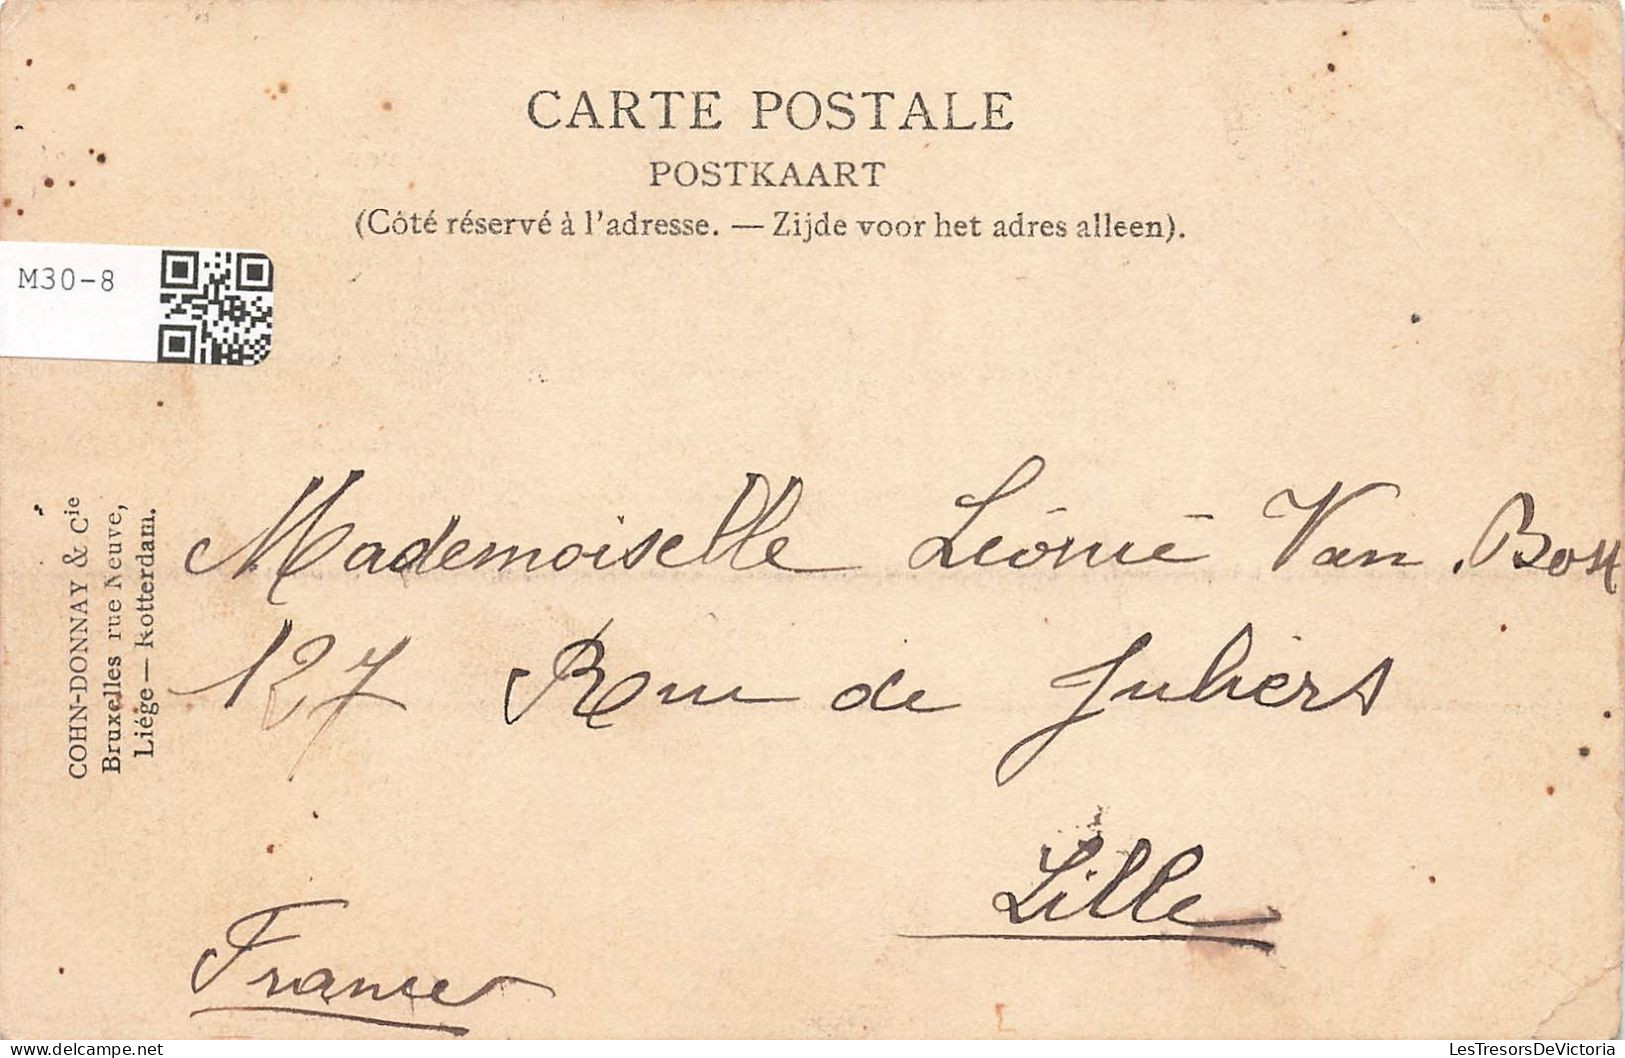 CARTE POSTALE
POSTKAART
(Côté réservé à l'adresse. — Zijde voor het adres alleen).
M30-8
COHN-DONNAY & Cie
Bruxelles rue Neuve,
Liége — Rotterdam.
Mademoiselle Léonie Van
127 Rue de Juliers
Lille
France
LesTresorsDeVictoria